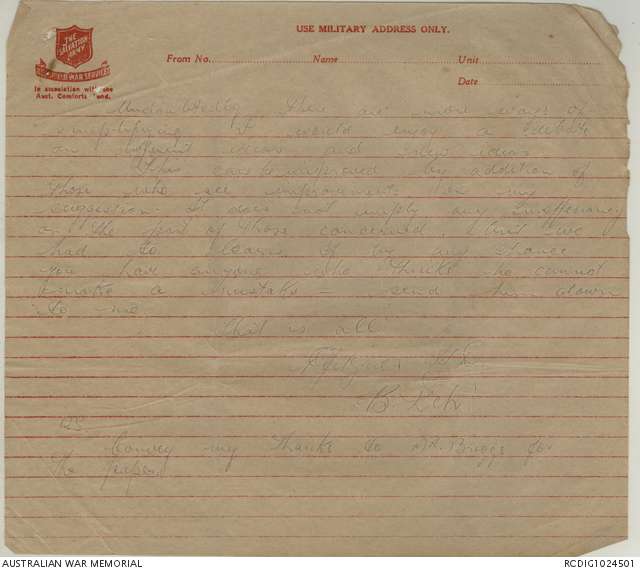 USE MILITARY ADDRESS ONLY.
THE SALVATION ARMY
WAR SERVICES
In association with the
Aust. Comforts Fund.
From No. Name Unit
Date
Undoubtedly, there are more ways of
simplifying. It would need a
on different ideas and new ideas
This can be improved by addition of
those who see improvements in my
suggestion. It does not imply any inefficiency
on the part of those concerned, but we
had to learn. If by any chance
you have anyone who thinks he cannot
make a mistake – send him down
to me.
That is all
B.
PS
Convey my thanks to Briggs for
the paper.
AUSTRALIAN WAR MEMORIAL
RCDIG1024501